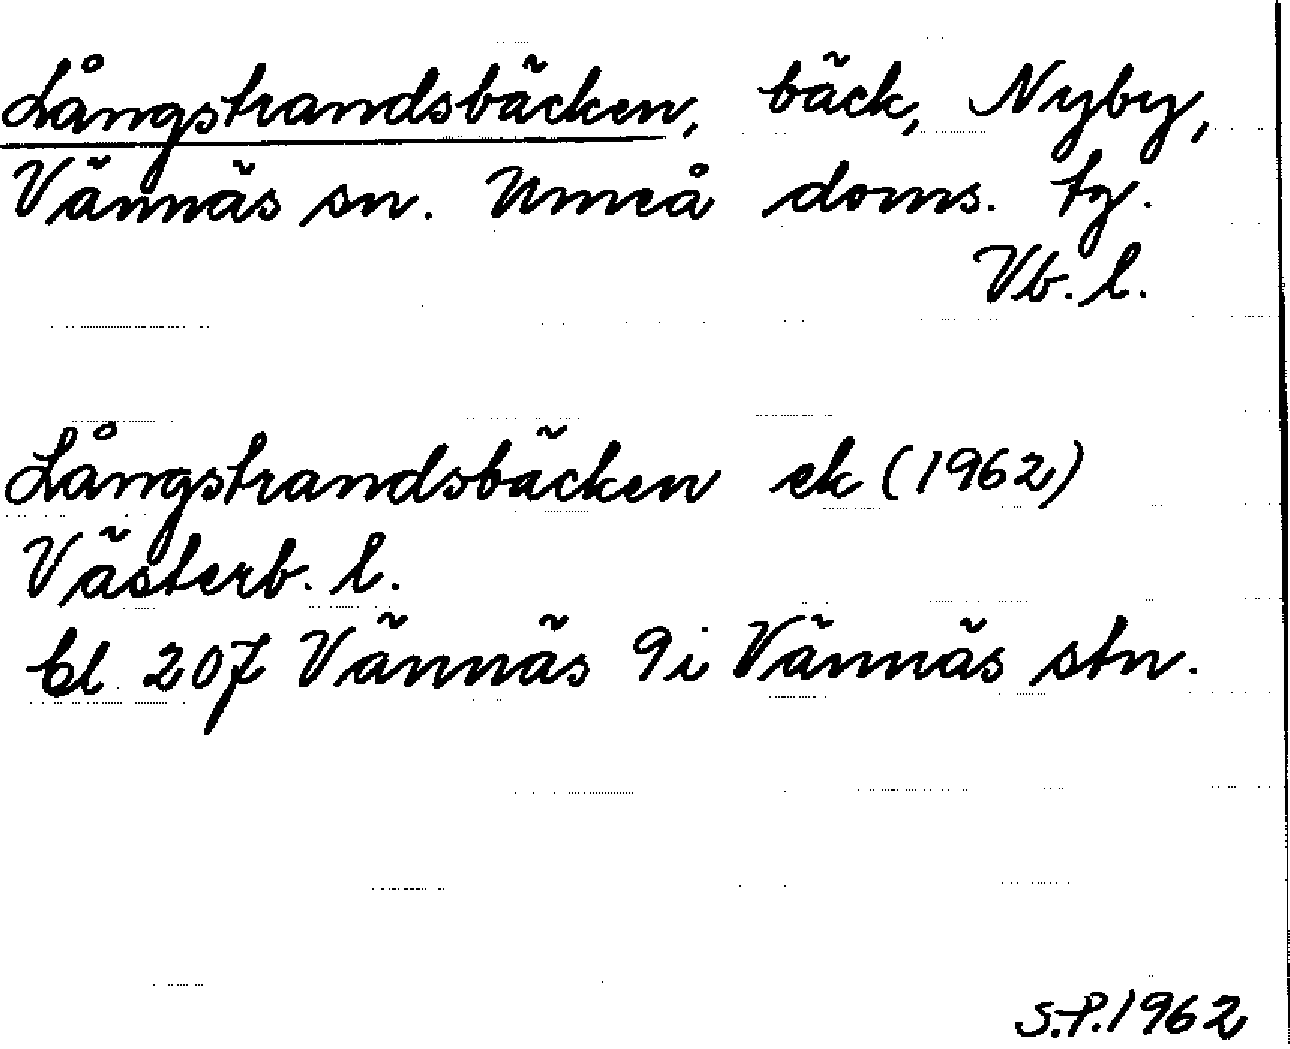 Långstrandsbäcken, bäck, Nyby,
Vännäs sn. Umeå doms. tg.
Vb. l.
Långstrandsbäcken ek (1962)
Västerb. l.
bl 207 Vännäs 9i Vännäs stn.
S.P. 1962